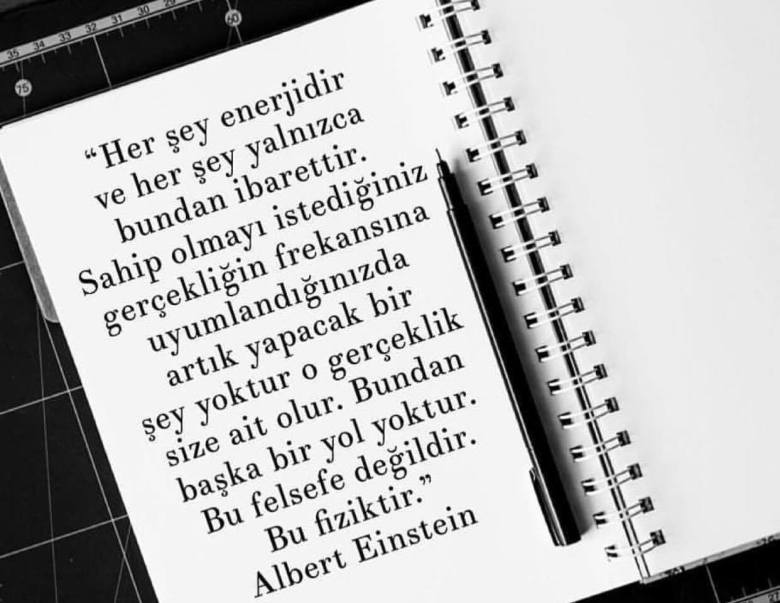 35 34 33 32 31 30 29
60
75
“Her şey enerjidir
ve her şey yalnızca
bundan ibarettir.
Sahip olmayı istediğiniz
gerçekliğin frekansına
uyumlandığınızda
artık yapacak bir
şey yoktur o gerçeklik
size ait olur. Bundan
başka bir yol yoktur.
Bu felsefe değildir.
Bu fiziktir.”
Albert Einstein